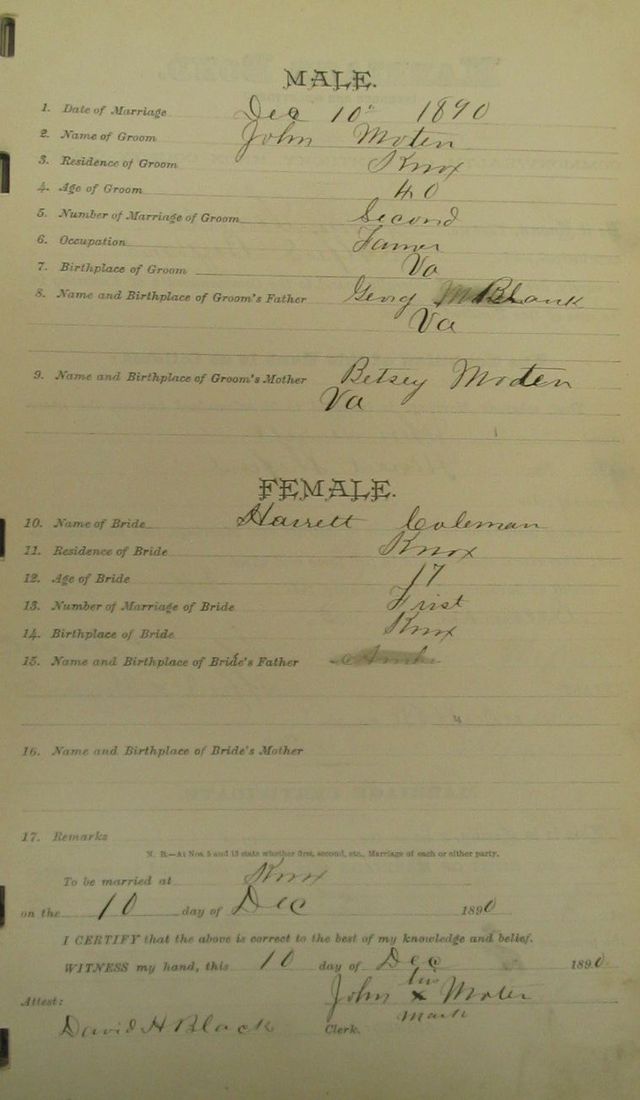 MALE.
1. Date of Marriage Dec 10th 1890
2. Name of Groom John Moten
3. Residence of Groom Knox
4. Age of Groom 40
5. Number of Marriage of Groom Second
6. Occupation Famer
7. Birthplace of Groom Va
8. Name and Birthplace of Groom's Father Georg Blank
Va
9. Name and Birthplace of Groom's Mother Betsey Moten
Va
FEMALE.
10. Name of Bride Harrett Coleman
11. Residence of Bride Knox
12. Age of Bride 17
13. Number of Marriage of Bride Frist
14. Birthplace of Bride Knox
15. Name and Birthplace of Bride's Father
16. Name and Birthplace of Bride's Mother
17. Remarks
N. B.—At Nos. 5 and 13 state whether first, second, etc., Marriage of each or either party.
To be married at Knox
on the 10 day of Dec 1890
I CERTIFY that the above is correct to the best of my knowledge and belief.
WITNESS my hand, this 10 day of Dec 1890.
his
Attest: John x Moten
mark
David H Black Clerk.